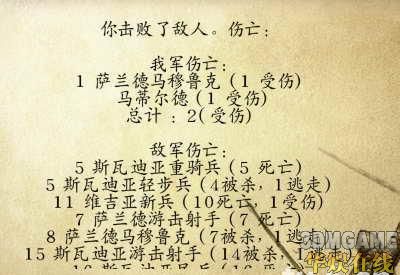 你击败了敌人。伤亡：
我军伤亡：
1 萨兰德马穆鲁克 (1 受伤)
马蒂尔德 (1 受伤)
总计 : 2( 受伤)
敌军伤亡：
5 斯瓦迪亚重骑兵 (5 死亡)
5 斯瓦迪亚轻步兵 (4被杀, 1逃走)
11 维吉亚新兵 (10死亡, 1受伤)
7 萨兰德游击射手 (7 死亡)
8 萨兰德马穆鲁克 (7被杀, 1逃走)
15 斯瓦迪亚游击射手 (14被杀,
3DMGAME